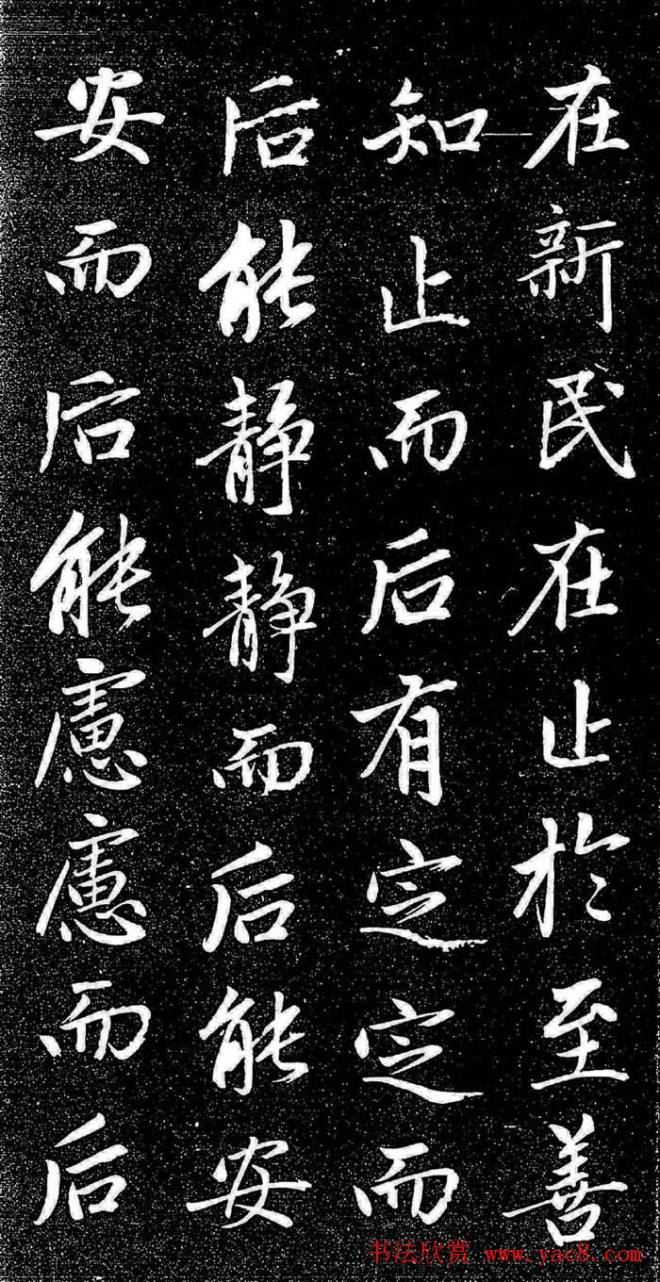 在新民在止於至善
知止而后有定定而
后能静静而后能安
安而后能慮慮而后
书法欣赏 www.yac8.com